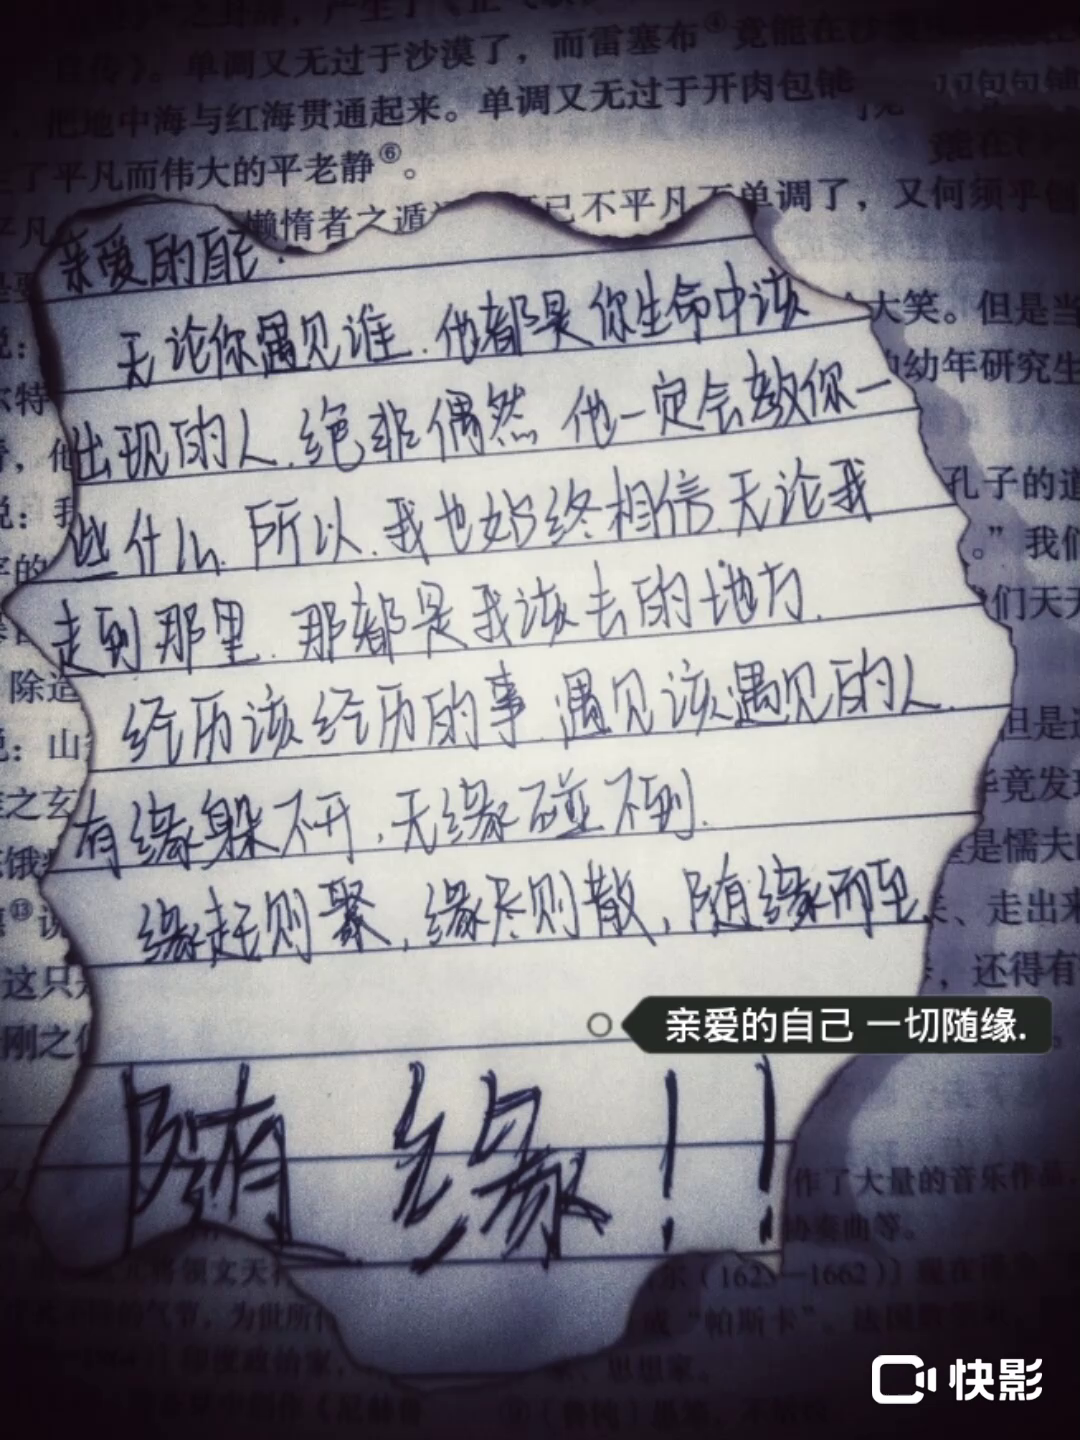 单调又无过于沙漠了，而雷塞布④竟能在沙
把地中海与红海贯通起来。单调又无过于开肉包铺
了平凡而伟大的平老静⑥。
懒惰者之遁
己不平凡
单调了，又何须乎包
大笑。但是当
幼年研究生
亲爱的自己:
无论你遇见谁.他都是你生命中该
出现的人.绝非偶然 他一定会教你一
些什么.所以.我也始终相信.无论我
走到那里.那都是我该去的地方.
经历该经历的事.遇见该遇见的人.
有缘躲不开,无缘碰不到.
缘起则聚,缘尽则散,随缘而至
孔子的道
。”我们
们天天
除造
说：山
但是
毕竟发现
之玄
是懦夫
、走出来
这只
，还得有
刚之
亲爱的自己 一切随缘.
随 缘!!
作了大量的音乐作品
协奏曲等。
领文天
尔（1623—1662）〕现在
的气节，为世所
或“帕斯卡”。法国
印度政治家，
家、思想家。
快影